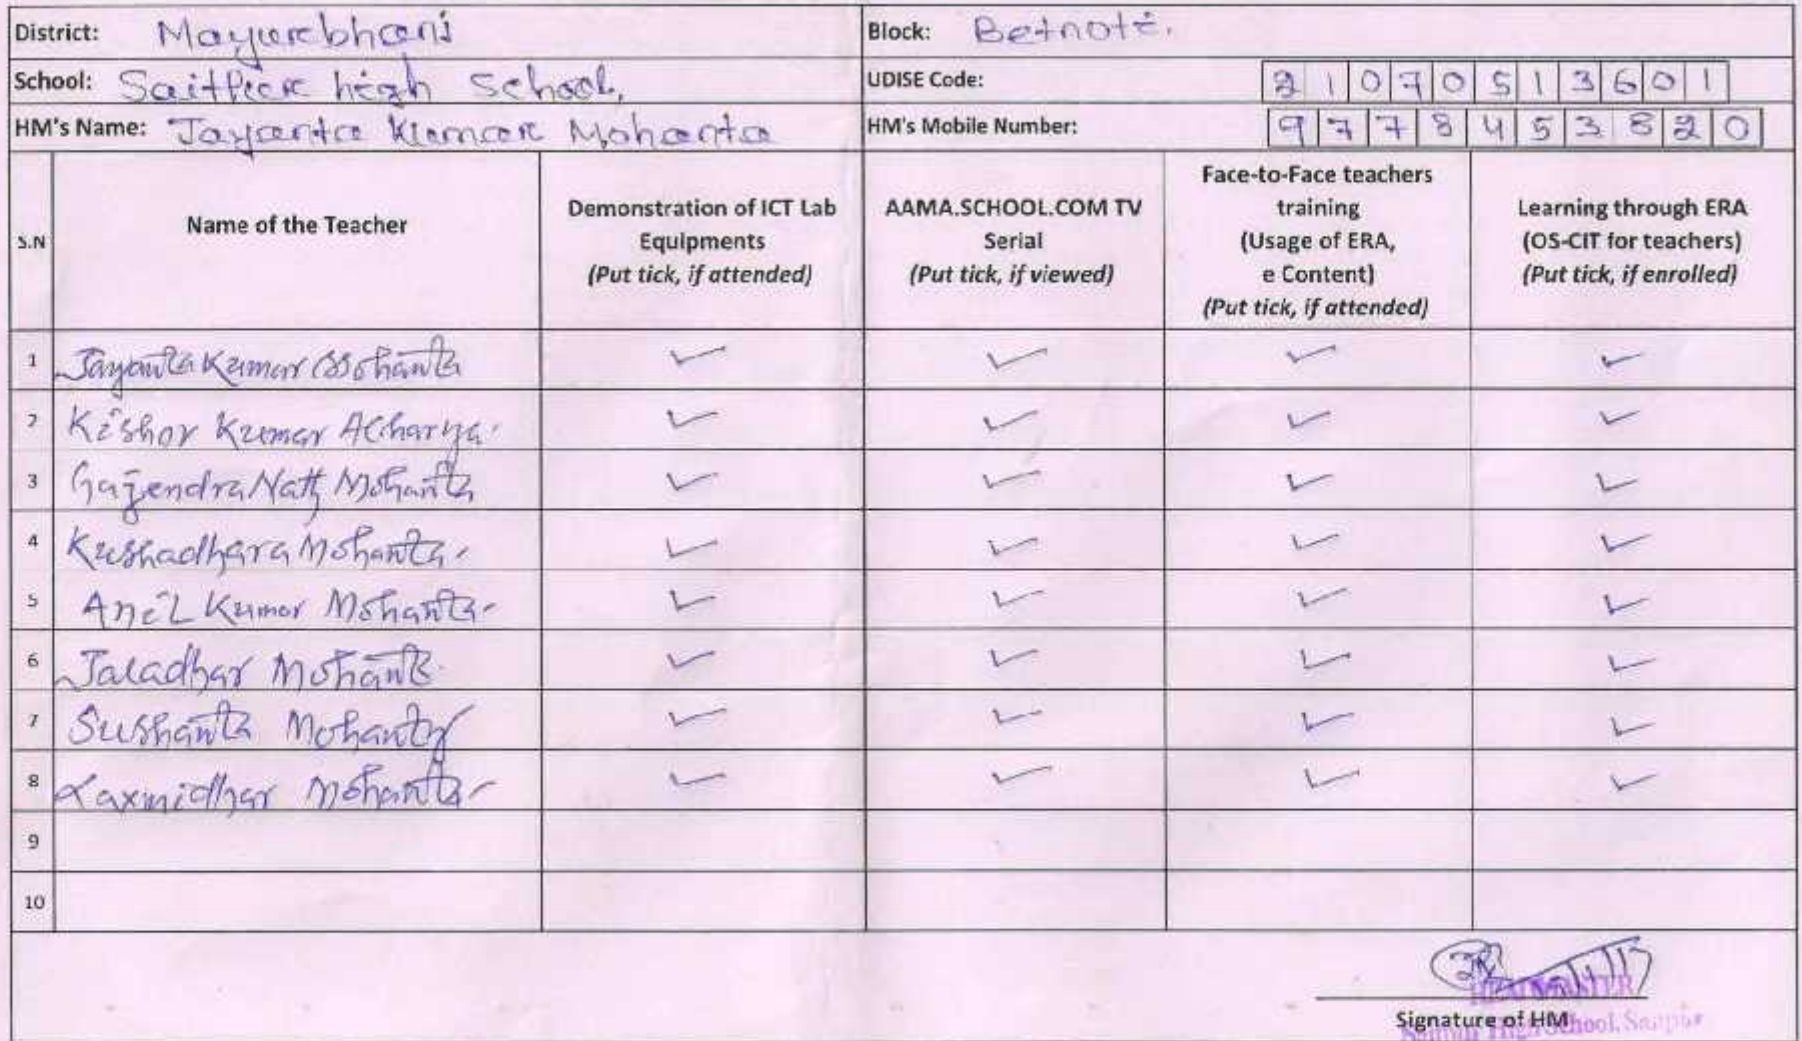 District: Mayurbhanj Block: Betnoti.
School: Saitpur high School, UDISE Code: 21070513601
HM's Name: Jayanta Kumar Mohanta HM's Mobile Number: 9778453820
S.N Name of the Teacher Demonstration of ICT Lab Equipments (Put tick, if attended) AAMA.SCHOOL.COM TV Serial (Put tick, if viewed) Face-to-Face teachers training (Usage of ERA, e Content) (Put tick, if attended) Learning through ERA (OS-CIT for teachers) (Put tick, if enrolled)
1 Jayanta Kumar Mohanta ✓ ✓ ✓ ✓
2 Kishor Kumar Acharya. ✓ ✓ ✓ ✓
3 Gajendra Nath Mohanta ✓ ✓ ✓ ✓
4 Kushadhara Mohanta. ✓ ✓ ✓ ✓
5 Anil Kumar Mohanta. ✓ ✓ ✓ ✓
6 Jaladhar Mohanta. ✓ ✓ ✓ ✓
7 Sushanta Mohanty ✓ ✓ ✓ ✓
8 Laxmidhar Mohanta. ✓ ✓ ✓ ✓
9
10
HEADMASTER
Signature of HM
Saitpur High School, Saitpur